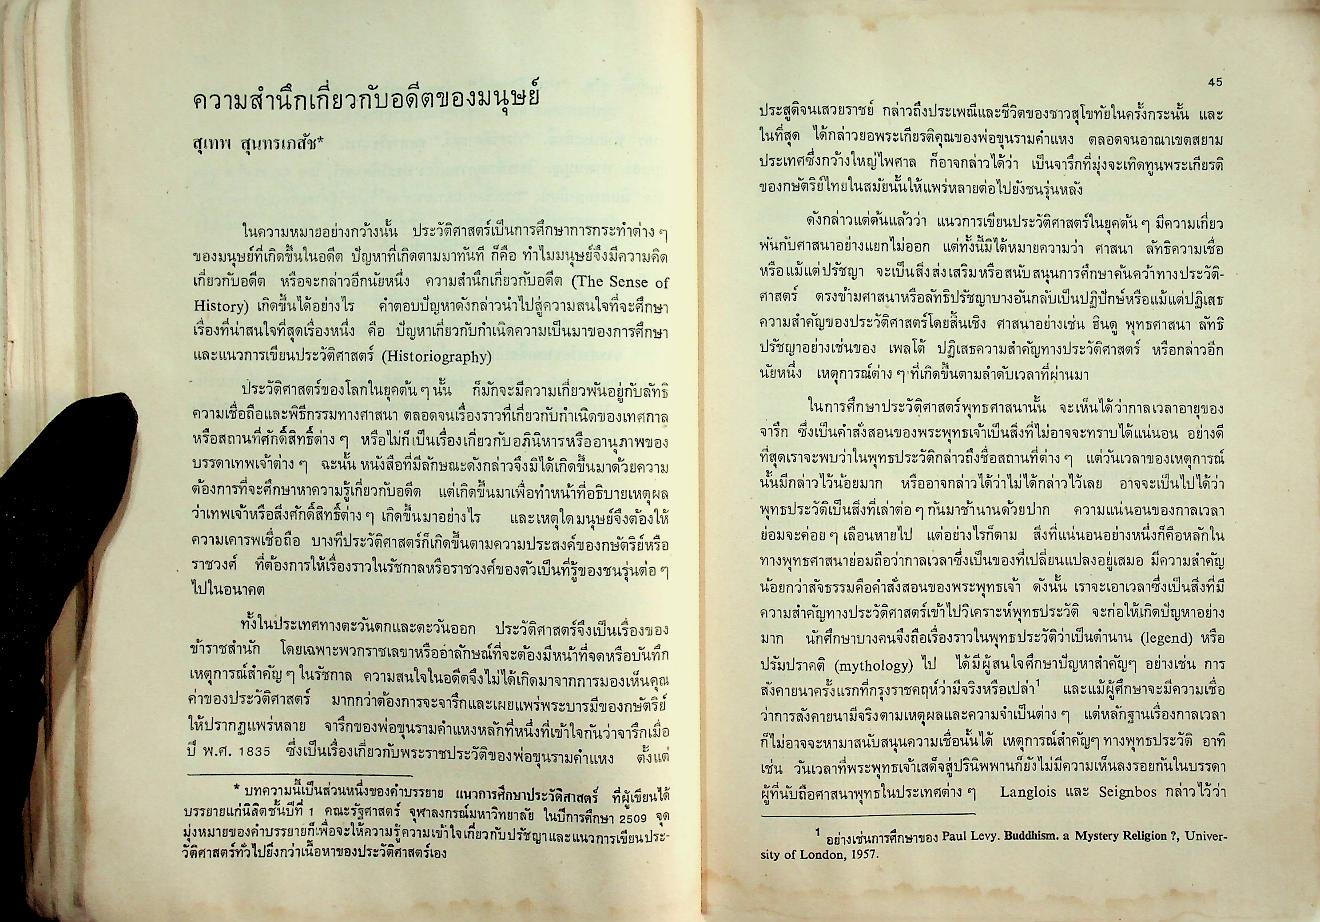 ความสำนึกเกี่ยวกับอดีตของมนุษย์
สุเทพ สุนทรเภสัช*
ในความหมายอย่างกว้างนั้น ประวัติศาสตร์เป็นการศึกษาการกระทำต่าง ๆ
ของมนุษย์ที่เกิดขึ้นในอดีต ปัญหาที่เกิดตามมาทันที ก็คือ ทำไมมนุษย์จึงมีความคิด
เกี่ยวกับอดีต หรือจะกล่าวอีกนัยหนึ่ง ความสำนึกเกี่ยวกับอดีต (The Sense of
History) เกิดขึ้นได้อย่างไร คำตอบปัญหาดังกล่าวนำไปสู่ความสนใจที่จะศึกษา
เรื่องที่น่าสนใจที่สุดเรื่องหนึ่ง คือ ปัญหาเกี่ยวกับกำเนิดความเป็นมาของการศึกษา
และแนวการเขียนประวัติศาสตร์ (Historiography)
ประวัติศาสตร์ของโลกในยุคต้น ๆ นั้น ก็มักจะมีความเกี่ยวพันอยู่กับลัทธิ
ความเชื่อถือและพิธีกรรมทางศาสนา ตลอดจนเรื่องราวที่เกี่ยวกับกำเนิดของเทศกาล
หรือสถานที่ศักดิ์สิทธิ์ต่าง ๆ หรือไม่ก็เป็นเรื่องเกี่ยวกับอภินิหารหรืออานุภาพของ
บรรดาเทพเจ้าต่าง ๆ ฉะนั้น หนังสือที่มีลักษณะดังกล่าวจึงมิได้เกิดขึ้นมาด้วยความ
ต้องการที่จะศึกษาหาความรู้เกี่ยวกับอดีต แต่เกิดขึ้นมาเพื่อทำหน้าที่อธิบายเหตุผล
ว่าเทพเจ้าหรือสิ่งศักดิ์สิทธิ์ต่าง ๆ เกิดขึ้นมาอย่างไร และเหตุใดมนุษย์จึงต้องให้
ความเคารพเชื่อถือ บางทีประวัติศาสตร์ก็เกิดขึ้นตามความประสงค์ของกษัตริย์หรือ
ราชวงศ์ ที่ต้องการให้เรื่องราวในรัชกาลหรือราชวงศ์ของตัวเป็นที่รู้ของชนรุ่นต่อ ๆ
ไปในอนาคต
ทั้งในประเทศทางตะวันตกและตะวันออก ประวัติศาสตร์จึงเป็นเรื่องของ
ข้าราชสำนัก โดยเฉพาะพวกราชเลขาหรืออาลักษณ์ที่จะต้องมีหน้าที่จดหรือบันทึก
เหตุการณ์สำคัญ ๆ ในรัชกาล ความสนใจในอดีตจึงไม่ได้เกิดมาจากการมองเห็นคุณ
ค่าของประวัติศาสตร์ มากกว่าต้องการจะจารึกและเผยแพร่พระบารมีของกษัตริย์
ให้ปรากฏแพร่หลาย จารึกของพ่อขุนรามคำแหงหลักที่หนึ่งที่เข้าใจกันว่าจารึกเมื่อ
ปี พ.ศ. 1835 ซึ่งเป็นเรื่องเกี่ยวกับพระราชประวัติของพ่อขุนรามคำแหง ตั้งแต่
* บทความนี้เป็นส่วนหนึ่งของคำบรรยาย แนวการศึกษาประวัติศาสตร์ ที่ผู้เขียนได้
บรรยายแก่นิสิตชั้นปีที่ 1 คณะรัฐศาสตร์ จุฬาลงกรณ์มหาวิทยาลัย ในปีการศึกษา 2509 จุด
มุ่งหมายของคำบรรยายก็เพื่อจะให้ความรู้ความเข้าใจเกี่ยวกับปรัชญาและแนวการเขียนประ-
วัติศาสตร์ทั่วไปยิ่งกว่าเนื้อหาของประวัติศาสตร์เอง
45
ประสูติจนเสวยราชย์ กล่าวถึงประเพณีและชีวิตของชาวสุโขทัยในครั้งกระนั้น และ
ในที่สุด ได้กล่าวยอพระเกียรติคุณของพ่อขุนรามคำแหง ตลอดจนอาณาเขตสยาม
ประเทศซึ่งกว้างใหญ่ไพศาล ก็อาจกล่าวได้ว่า เป็นจารึกที่มุ่งจะเทิดทูนพระเกียรติ
ของกษัตริย์ไทยในสมัยนั้นให้แพร่หลายต่อไปยังชนรุ่นหลัง
ดังกล่าวแต่ต้นแล้วว่า แนวการเขียนประวัติศาสตร์ในยุคต้น ๆ มีความเกี่ยว
พันกับศาสนาอย่างแยกไม่ออก แต่ทั้งนี้มิได้หมายความว่า ศาสนา ลัทธิความเชื่อ
หรือแม้แต่ปรัชญา จะเป็นสิ่งส่งเสริมหรือสนับสนุนการศึกษาค้นคว้าทางประวัติ-
ศาสตร์ ตรงข้ามศาสนาหรือลัทธิปรัชญาบางอันกลับเป็นปฏิปักษ์หรือแม้แต่ปฏิเสธ
ความสำคัญของประวัติศาสตร์โดยสิ้นเชิง ศาสนาอย่างเช่น ฮินดู พุทธศาสนา ลัทธิ
ปรัชญาอย่างเช่นของ เพลโต้ ปฏิเสธความสำคัญทางประวัติศาสตร์ หรือกล่าวอีก
นัยหนึ่ง เหตุการณ์ต่าง ๆ ที่เกิดขึ้นตามลำดับเวลาที่ผ่านมา
ในการศึกษาประวัติศาสตร์พุทธศาสนานั้น จะเห็นได้ว่ากาลเวลาอายุของ
จารึก ซึ่งเป็นคำสั่งสอนของพระพุทธเจ้าเป็นสิ่งที่ไม่อาจจะทราบได้แน่นอน อย่างดี
ที่สุดเราจะพบว่าในพุทธประวัติกล่าวถึงชื่อสถานที่ต่าง ๆ แต่วันเวลาของเหตุการณ์
นั้นมีกล่าวไว้น้อยมาก หรืออาจกล่าวได้ว่าไม่ได้กล่าวไว้เลย อาจจะเป็นไปได้ว่า
พุทธประวัติเป็นสิ่งที่เล่าต่อ ๆ กันมาช้านานด้วยปาก ความแน่นอนของกาลเวลา
ย่อมจะค่อย ๆ เลือนหายไป แต่อย่างไรก็ตาม สิ่งที่แน่นอนอย่างหนึ่งก็คือหลักใน
ทางพุทธศาสนาย่อมถือว่ากาลเวลาซึ่งเป็นของที่เปลี่ยนแปลงอยู่เสมอ มีความสำคัญ
น้อยกว่าสัจธรรมคือคำสั่งสอนของพระพุทธเจ้า ดังนั้น เราจะเอาเวลาซึ่งเป็นสิ่งที่มี
ความสำคัญทางประวัติศาสตร์เข้าไปวิเคราะห์พุทธประวัติ จะก่อให้เกิดปัญหาอย่าง
มาก นักศึกษาบางคนจึงถือเรื่องราวในพุทธประวัติว่าเป็นตำนาน (legend) หรือ
ปรัมปราคติ (mythology) ไป ได้มีผู้สนใจศึกษาปัญหาสำคัญๆ อย่างเช่น การ
สังคายนาครั้งแรกที่กรุงราชคฤห์ว่ามีจริงหรือเปล่า¹ และแม้ผู้ศึกษาจะมีความเชื่อ
ว่าการสังคายนามีจริงตามเหตุผลและความจำเป็นต่าง ๆ แต่หลักฐานเรื่องกาลเวลา
ก็ไม่อาจจะหามาสนับสนุนความเชื่อนั้นได้ เหตุการณ์สำคัญๆ ทางพุทธประวัติ อาทิ
เช่น วันเวลาที่พระพุทธเจ้าเสด็จสู่ปรินิพพานก็ยังไม่มีความเห็นลงรอยกันในบรรดา
ผู้ที่นับถือศาสนาพุทธในประเทศต่าง ๆ Langlois และ Seignbos กล่าวไว้ว่า
¹ อย่างเช่นการศึกษาของ Paul Levy. Buddhism. a Mystery Religion ?, Univer-
sity of London, 1957.